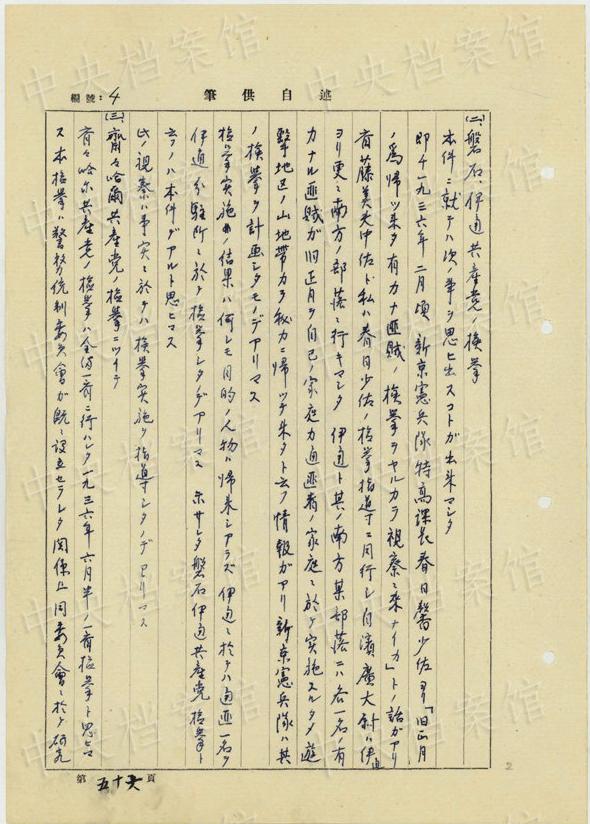 述自供筆
編號：4
(二)、磐石、伊通共産党ノ検挙
本件ニ就テハ次ノ事ヲ思ヒ出スコトガ出来マシタ
即チ一九三六年二月頃 新京憲兵隊特高課長春日馨少佐ヨリ「旧正月
ノ為帰ツ来タ有力ナ匪賊ノ検挙ヲヤルカラ視察ニ来ナイカ」トノ話ガアリ
斉藤美夫中佐ト私ハ春日少佐ノ検挙指導ニ同行シ自濱廣大尉ハ伊通
ヨリ更ニ南方ノ部落ニ行キマシタ 伊通ト其ノ南方某部落ニハ各一名ノ有
力ナル匪賊ガ旧正月ヲ自己ノ家庭カ通匪者ノ家庭ニ於テ実施スルタメ遊
撃地区ノ山地帯カラ秘カニ帰ツテ来タト云フ情報ガアリ 新京憲兵隊ハ其
ノ検挙ヲ計画シタモノデアリマス
検挙実施ノ結果ハ何レモ目的ノ人物ハ帰来シアラズ 伊通ニ於テハ通匪一名ヲ
伊通分駐所ニ於テ検挙シタノデアリマス 示サレタ磐石伊通共産党検挙ト
云フノハ本件デアルト思ヒマス
此ノ視察ハ事実ニ於テハ検挙実施ヲ指導シタノデアリマス
(三)、齊々哈爾共産党ノ検挙ニツイテ
斉々哈尔共産党ノ検挙ハ全満一斉ニ行ハレタ一九三六年六月半ノ一斉検挙ト思ヒマ
ス 本検挙ハ警務統制委員會ガ既ニ設立セラレタ関係上同委員會ニ於テ研究
第五十六頁
2
中央档案馆